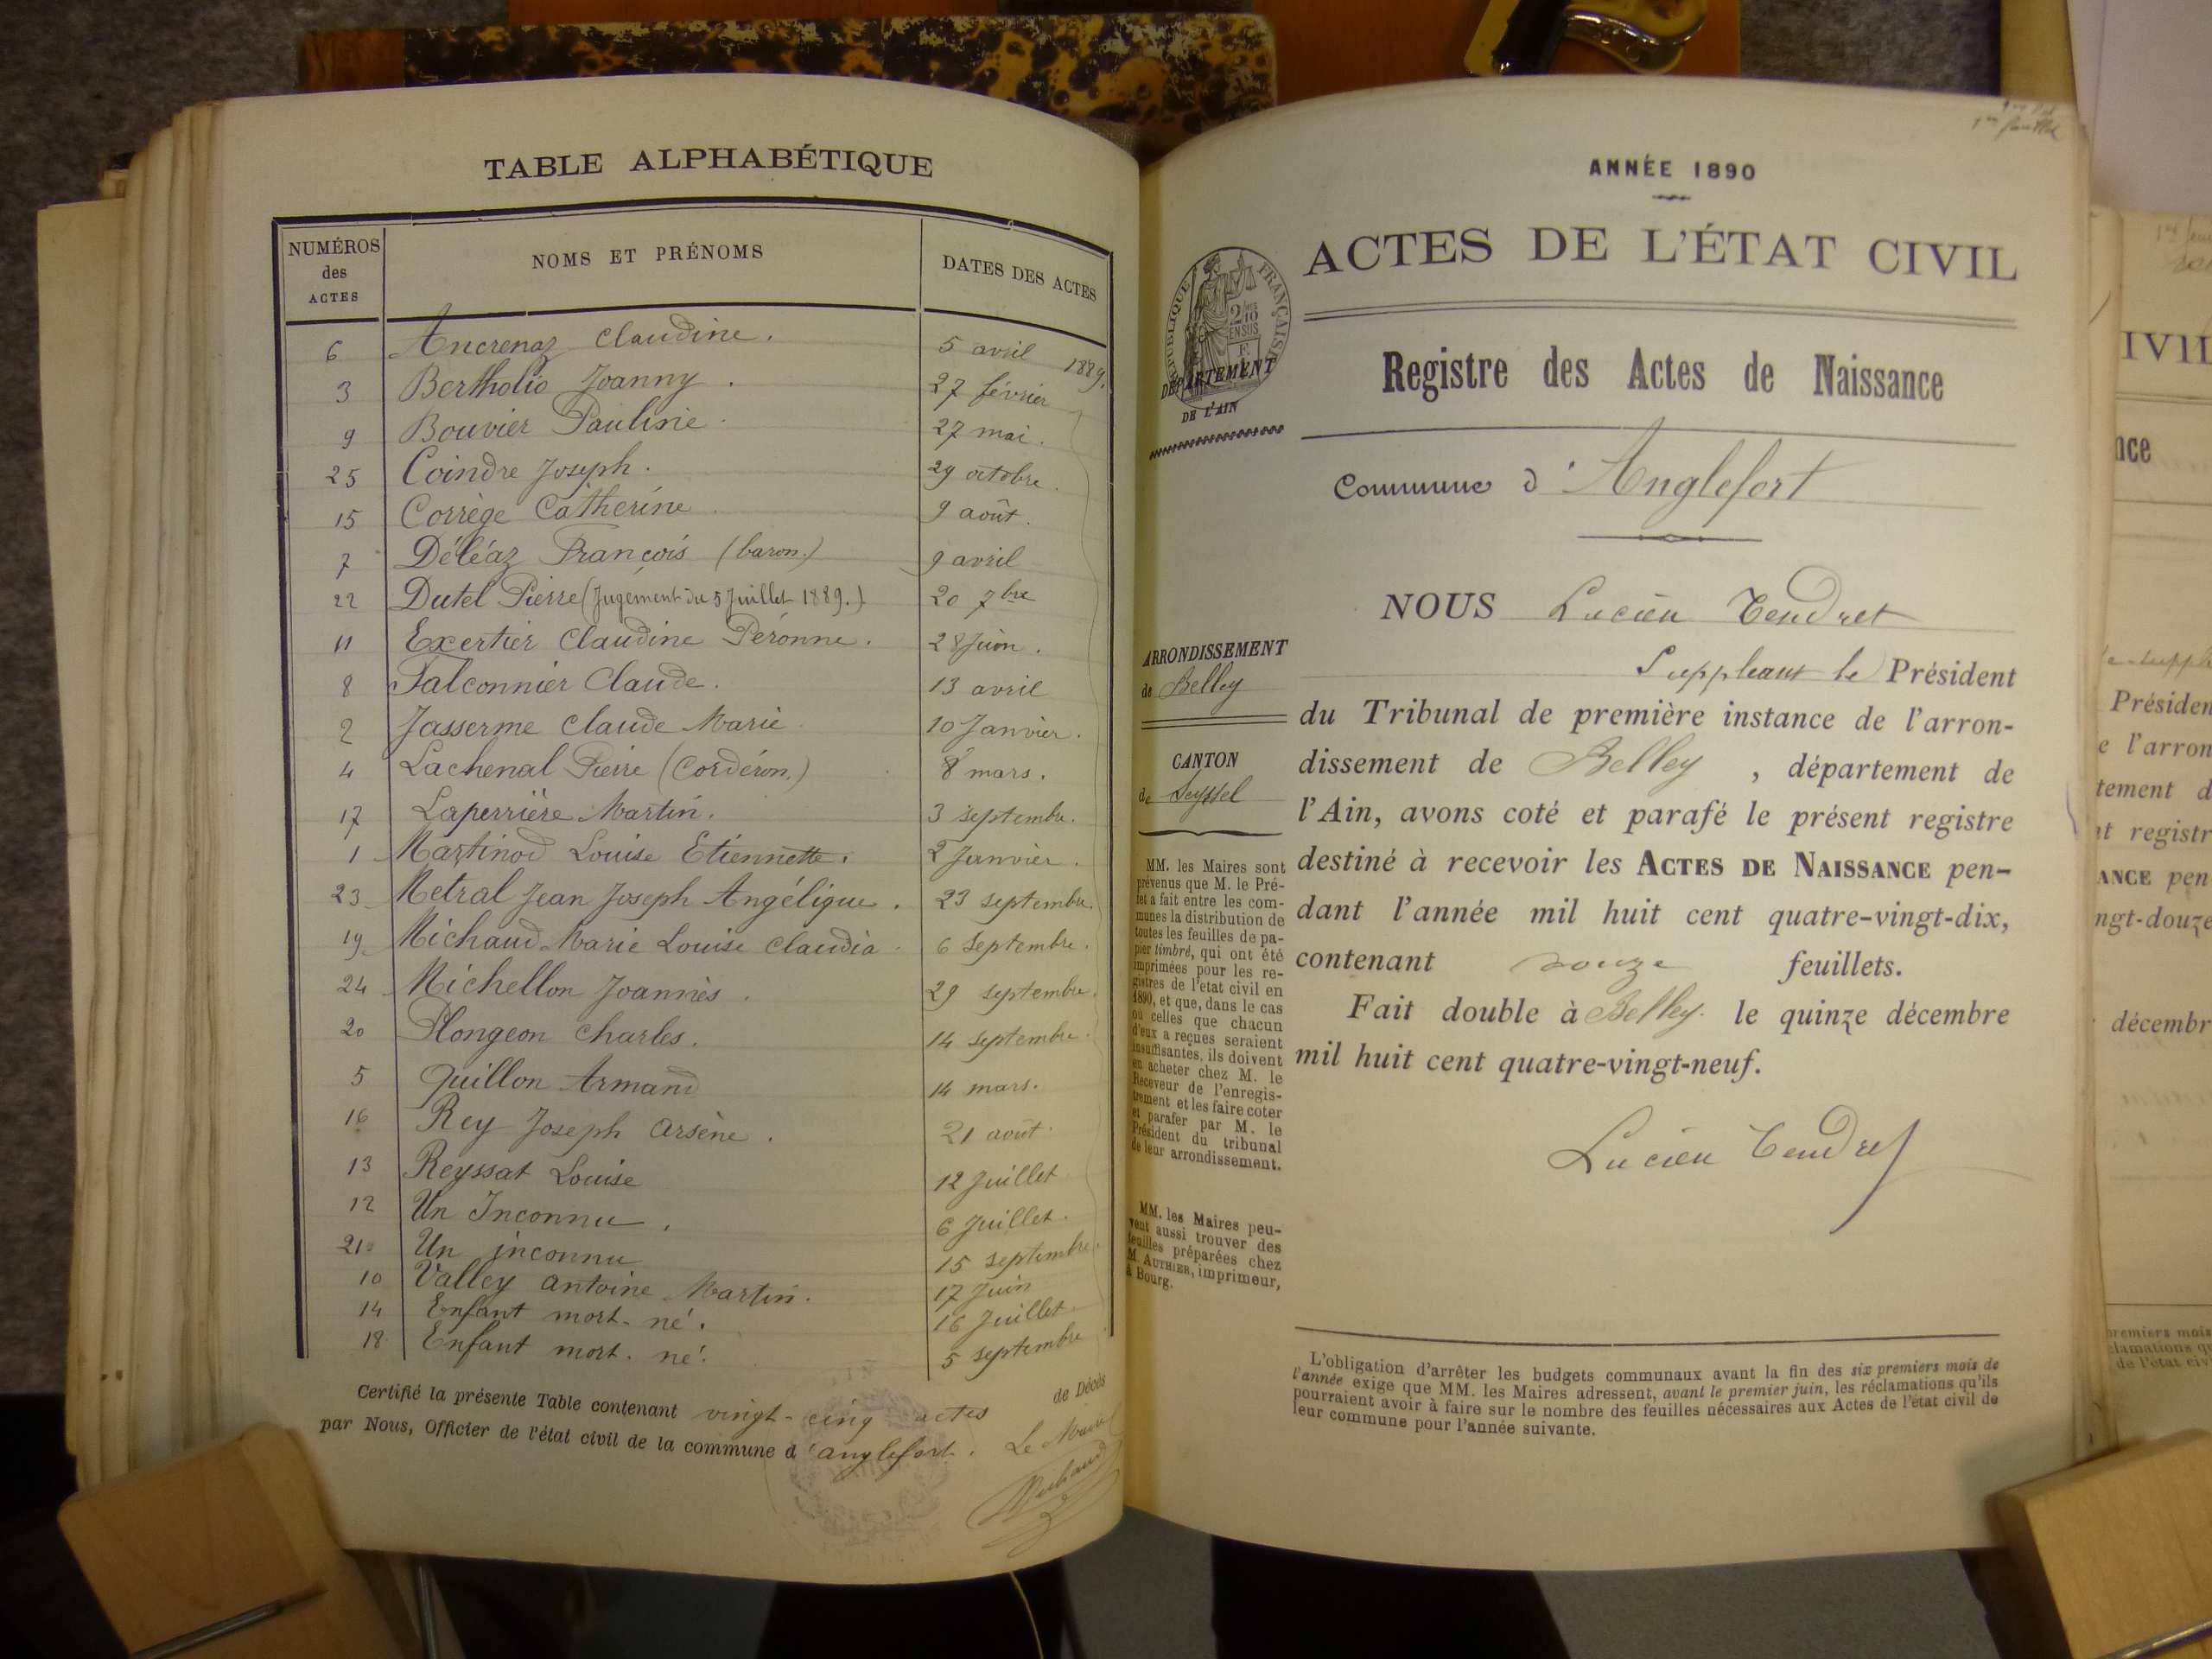 TABLE ALPHABÉTIQUE
NUMÉROS des ACTES
NOMS ET PRÉNOMS
DATES DES ACTES
6 Ancrenaz Claudine. 5 avril 1889.
3 Bertholio Joanny. 27 février
9 Bouvier Pauline 27 mai.
25 Coindre Joseph. 29 octobre.
15 Corrège Catherine 9 août.
7 Déléaz François (baron.) 9 avril
22 Dutel Pierre (Jugement du 5 Juillet 1889.) 20 7bre
11 Exertier Claudine Péronne. 28 Juin.
8 Falconnier Claude. 13 avril
2 Jasserme Claude Marie 10 Janvier.
4 Lachenal Pierre (Cordéron.) 8 mars.
17 Laperrière Martin. 3 septembre.
1 Martinod Louise Etiennette. 2 Janvier.
23 Metral Jean Joseph Angélique. 23 septembre.
19 Michaud Marie Louise Claudia 6 Septembre.
24 Michellon Joannès. 29 septembre.
20 Plongeon Charles. 14 septembre.
5 Quillon Armand 14 mars.
16 Rey Joseph Arsène. 21 août
13 Reyssat Louise 12 Juillet
12 Un Inconnu. 6 Juillet.
21 Un inconnu 15 septembre.
10 Valley Antoine Martin. 17 Juin
14 Enfant mort-né. 16 Juillet.
18 Enfant mort-né. 5 septembre
Certifié la présente Table contenant vingt-cinq actes de Décès
par Nous, Officier de l'état civil de la commune d'anglefort. Le Maire
Michaud
ANNÉE 1890
ACTES DE L'ÉTAT CIVIL
RÉPUBLIQUE FRANÇAISE
2/10 EN SUS
DÉPARTEMENT
DE L'AIN
Registre des Actes de Naissance
Commune d'Anglefort
NOUS Lucien Tendret
Suppléant le Président
du Tribunal de première instance de l'arron-
dissement de Belley, département de
l'Ain, avons coté et parafé le présent registre
destiné à recevoir les ACTES DE NAISSANCE pen-
dant l'année mil huit cent quatre-vingt-dix,
contenant douze feuillets.
Fait double à Belley. le quinze décembre
mil huit cent quatre-vingt-neuf.
Lucien Tendret
ARRONDISSEMENT
de Belley
CANTON
de Seyssel
MM. les Maires sont
prévenus que M. le Pré-
fet a fait entre les com-
munes la distribution de
toutes les feuilles de pa-
pier timbré, qui ont été
imprimées pour les re-
gistres de l'état civil en
1890, et que, dans le cas
où celles que chacun
d'eux a reçues seraient
insuffisantes, ils doivent
en acheter chez M. le
Receveur de l'enregis-
trement et les faire coter
et parafer par M. le
Président du tribunal
de leur arrondissement.
MM. les Maires peu-
vent aussi trouver des
feuilles préparées chez
M. AUTHIER, imprimeur,
à Bourg.
L'obligation d'arrêter les budgets communaux avant la fin des six premiers mois de
l'année exige que MM. les Maires adressent, avant le premier juin, les réclamations qu'ils
pourraient avoir à faire sur le nombre des feuilles nécessaires aux Actes de l'état civil de
leur commune pour l'année suivante.
IVIL
nce
Présiden
e l'arron
tement d
nt registr
ANCE pen
ngt-douze
décembr
premiers mois
clamations qu
de l'état civ